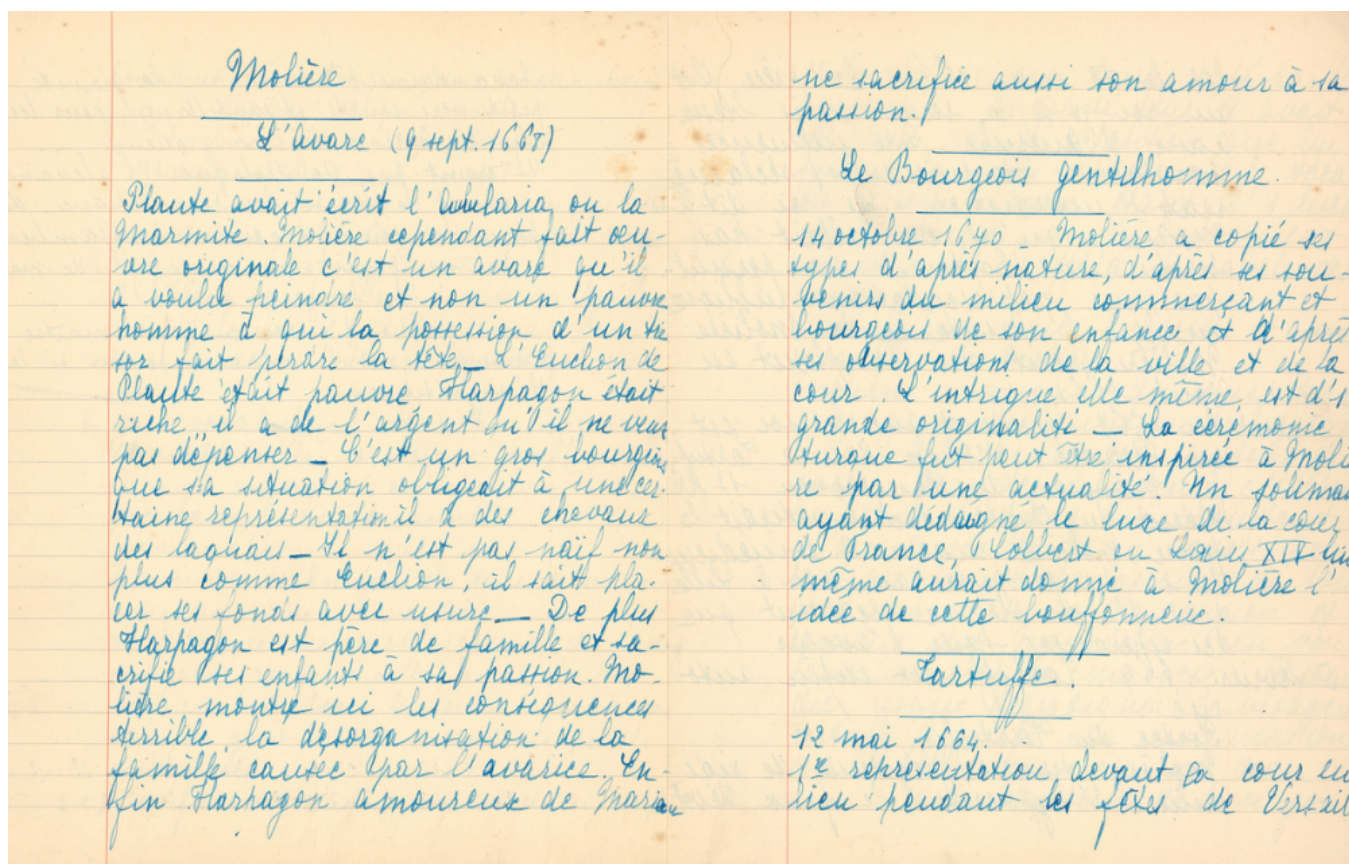 Molière
L'Avare (9 sept. 1668)
Plaute avait écrit l'Aulularia ou la
Marmite. Molière cependant fait œu-
vre originale c'est un avare qu'il
a voulu peindre et non un pauvre
homme à qui la possession d'un tré
sor fait perdre la tête_ L'Euclion de
Plaute était pauvre Harpagon était
riche, il a de l'argent qu'il ne veut
pas dépenser_ C'est un gros bourgeois
que sa situation obligeait à une cer-
taine représentation il a des chevaux
des laquais_ Il n'est pas naïf non
plus comme Euclion, il sait pla-
cer ses fonds avec usure_ De plus
Harpagon est père de famille et sa-
crifie ses enfants à sa passion. Mo-
lière montre ici les conséquences
terrible, la désorganisation de la
famille causée par l'avarice. En-
fin Harpagon amoureux de Marian
ne sacrifie aussi son amour à sa
passion.
Le Bourgeois gentilhomme.
14 octobre 1670_ Molière a copié ses
types d'après nature, d'après ses sou-
venirs du milieu commerçant et
bourgeois de son enfance et d'après
ses observations de la ville et de la
cour. L'intrigue elle même, est d'1
grande originalité_ La cérémonie
turque fut peut être inspirée à Moliè
re par une actualité. Un soliman
ayant dédaigné le luxe de la cour
de France, Colbert ou Louis XIV lui
même aurait donné à Molière l'
idée de cette bouffonnerie.
Tartuffe.
12 mai 1664.
1re représentation devant la cour eu
lieu pendant les fêtes de Versail